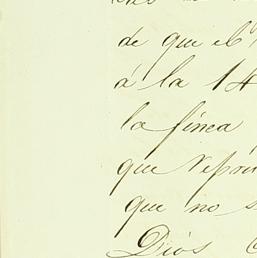 de que el
á la 14
la finca
que repres
que no s
Dios